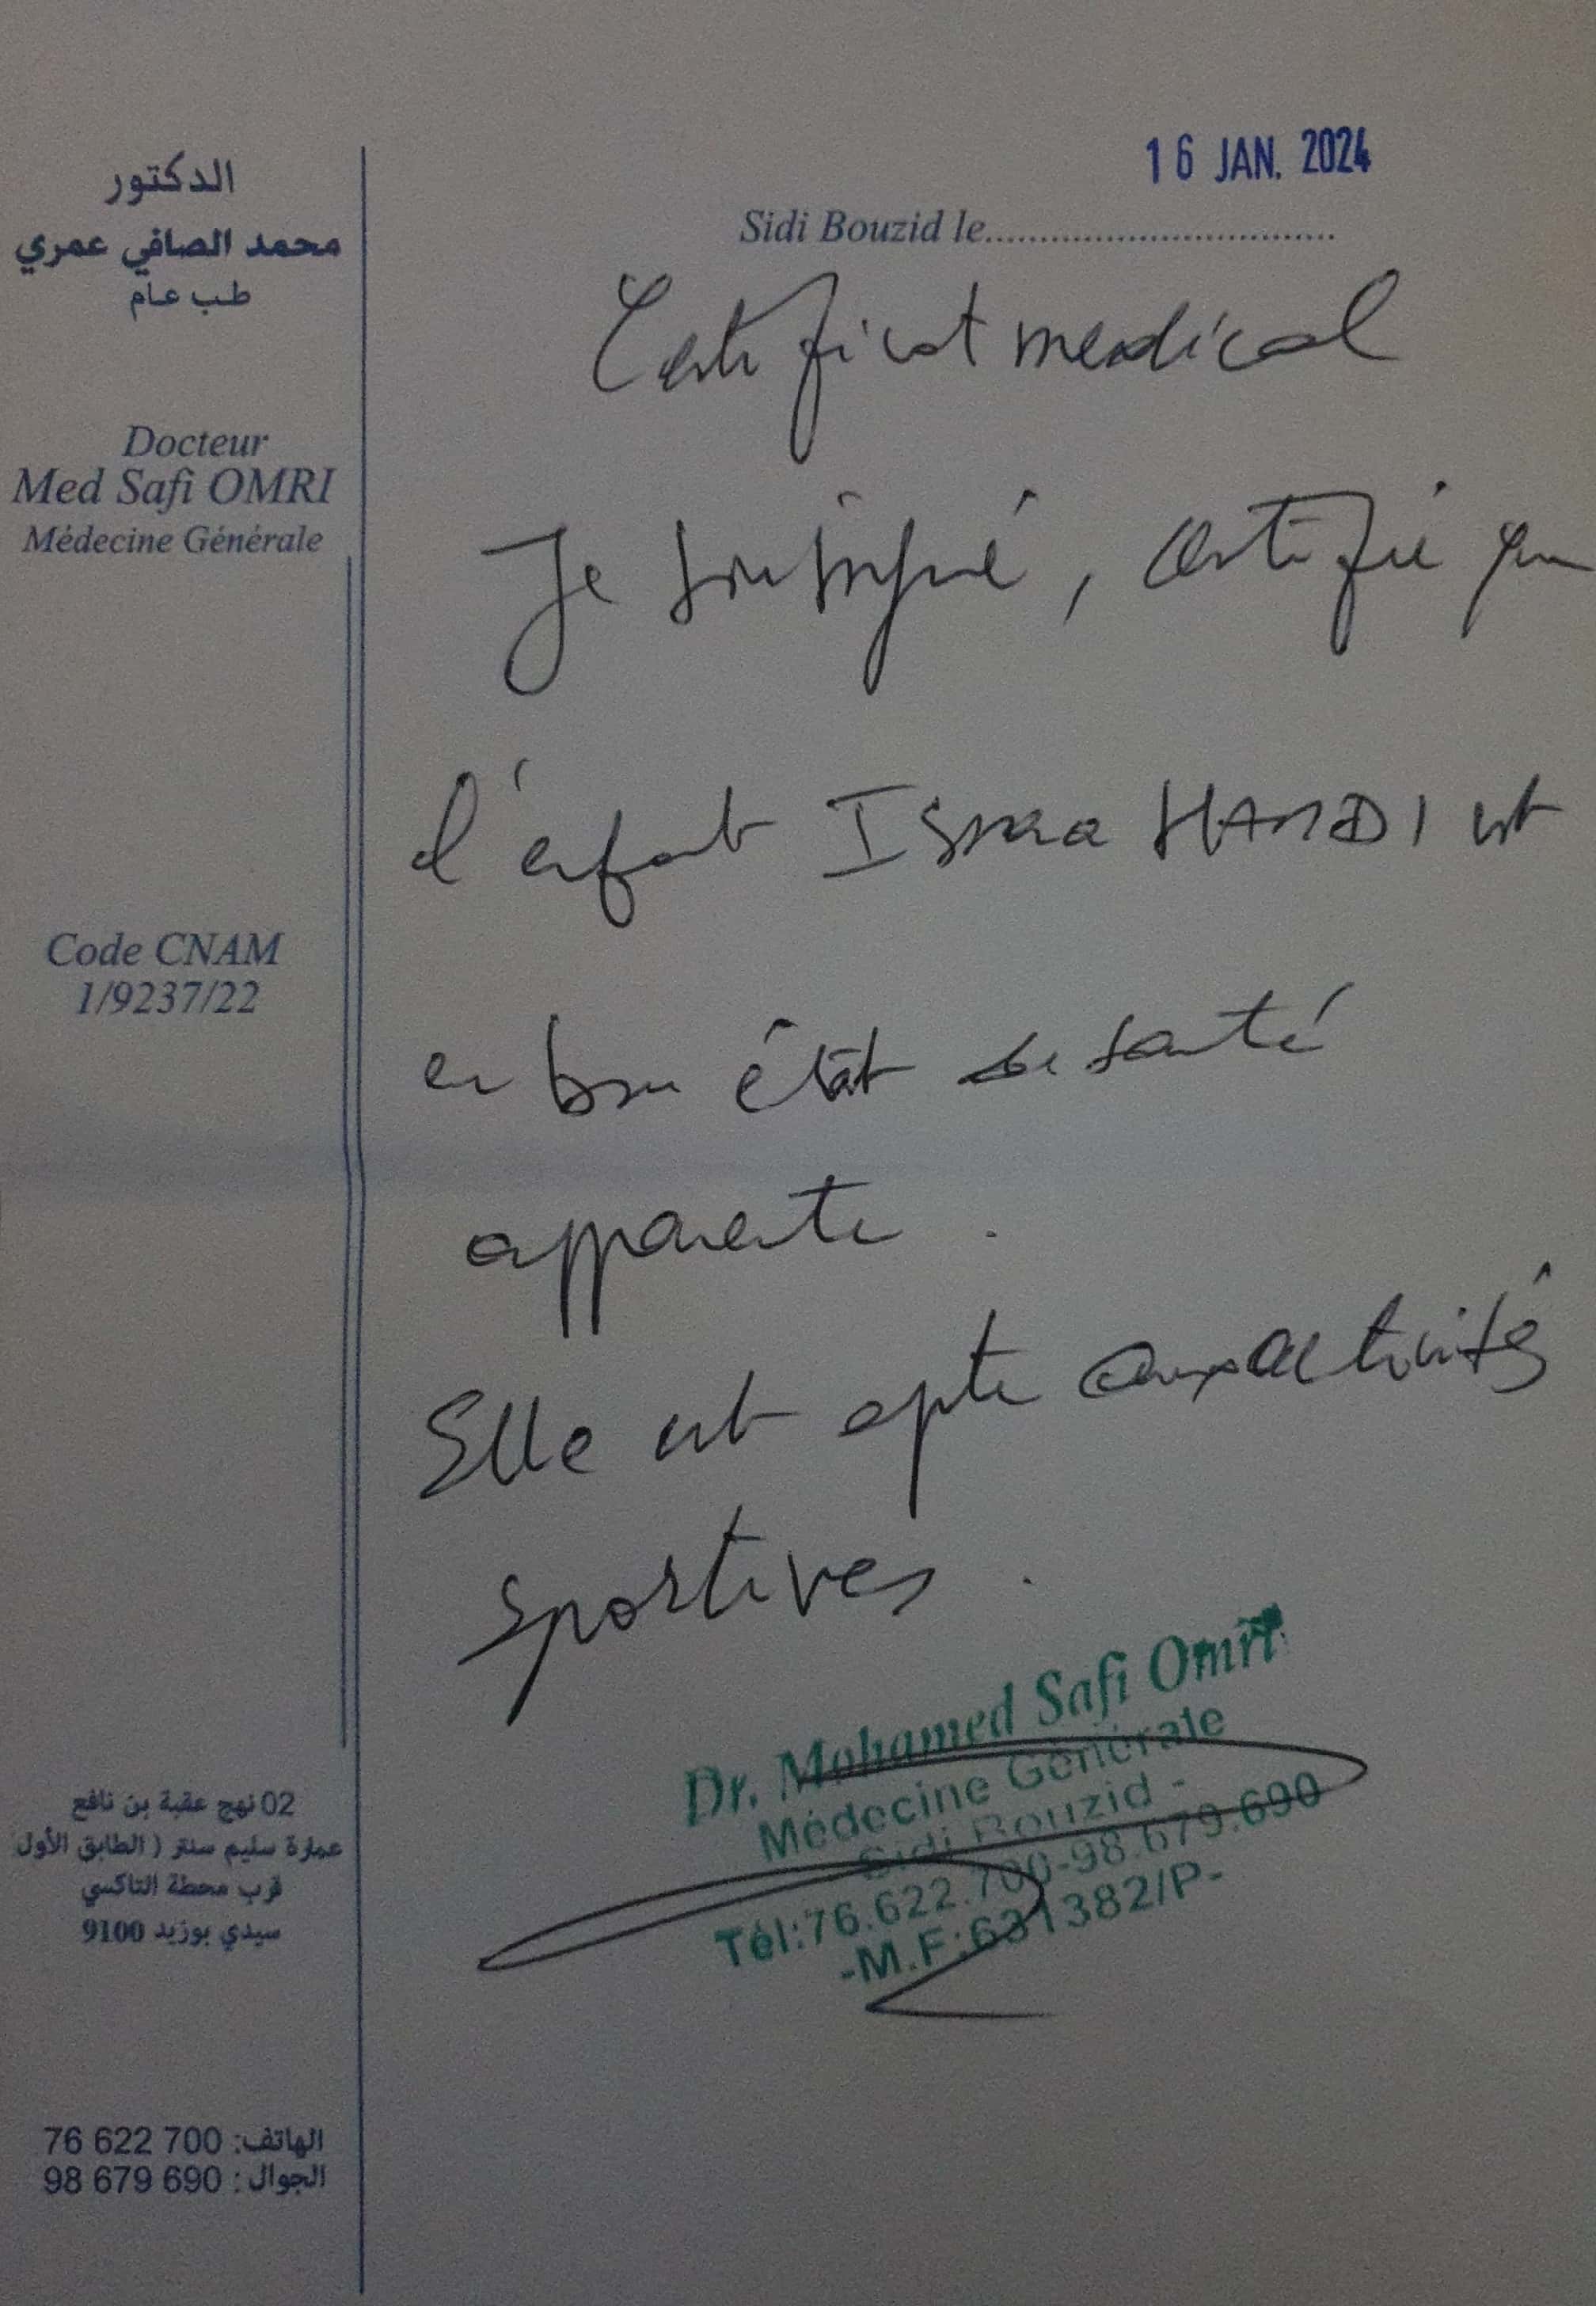 الدكتور
محمد الصافي عمري
طب عام
Docteur
Med Safi OMRI
Médecine Générale
Code CNAM
1/9237/22
02 نهج عقبة بن نافع
عمارة سليم سنتر ( الطابق الأول
قرب محطة التاكسي
سيدي بوزيد 9100
الهاتف: 76 622 700
الجوال : 98 679 690
16 JAN. 2024
Sidi Bouzid le
Certificat medical
Je soussigné, certifie que
l'enfant Israa HAMDI est
en bon état de santé
apparente .
Elle est apte aux activités
sportives .
Dr. Mohamed Safi Omri
Médecine Générale
Sidi Bouzid -
Tél:76.622.700-98.679.690
-M.F:631382/P-